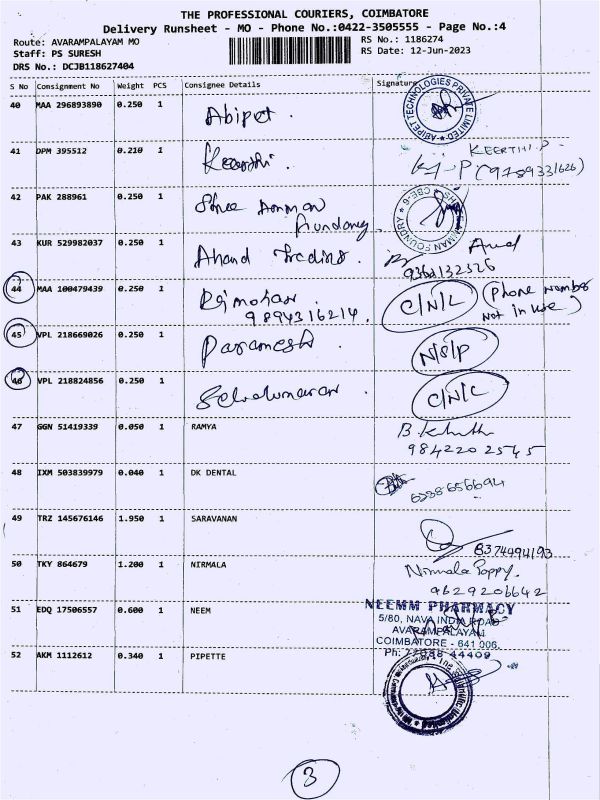 THE PROFESSIONAL COURIERS, COIMBATORE
Delivery Runsheet - MO - Phone No.:0422-3505555 - Page No.:4
Route: AVARAMPALAYAM MO
RS No.: 1186274
Staff: PS SURESH
RS Date: 12-Jun-2023
DRS No.: DCJB118627404
S No Consignment No Weight PCS Consignee Details Signature
40 MAA 296893890 0.250 1 Abipet.
ABIPET TECHNOLOGIES PRIVATE LIMITED
41 DPM 395512 0.210 1 Keerthi.
KEERTHI.P
(9789331626)
42 PAK 288961 0.250 1 Shree Amman
Foundry
43 KUR 529982037 0.250 1 Anand Trading.
44 MAA 100479439 0.250 1 Rajmohan.
9894316214.
C/N/L (Phone number
not in use)
45 VPL 218669026 0.250 1 Paramesh.
N/S/P
46 VPL 218824856 0.250 1 Selvakumaran.
C/N/C
47 GGN 51419339 0.050 1 RAMYA
9842202545
48 IXM 503839979 0.040 1 DK DENTAL
49 TRZ 145676146 1.950 1 SARAVANAN
8374494193
50 TKY 864679 1.200 1 NIRMALA
Nirmala Poppy.
9629206642
51 EDQ 17506557 0.600 1 NEEM
NEEMM PHARMACY
5/80, NAVA INDIA ROAD
AVARAMPALAYAM
COIMBATORE - 641 006.
52 AKM 1112612 0.340 1 PIPETTE
3